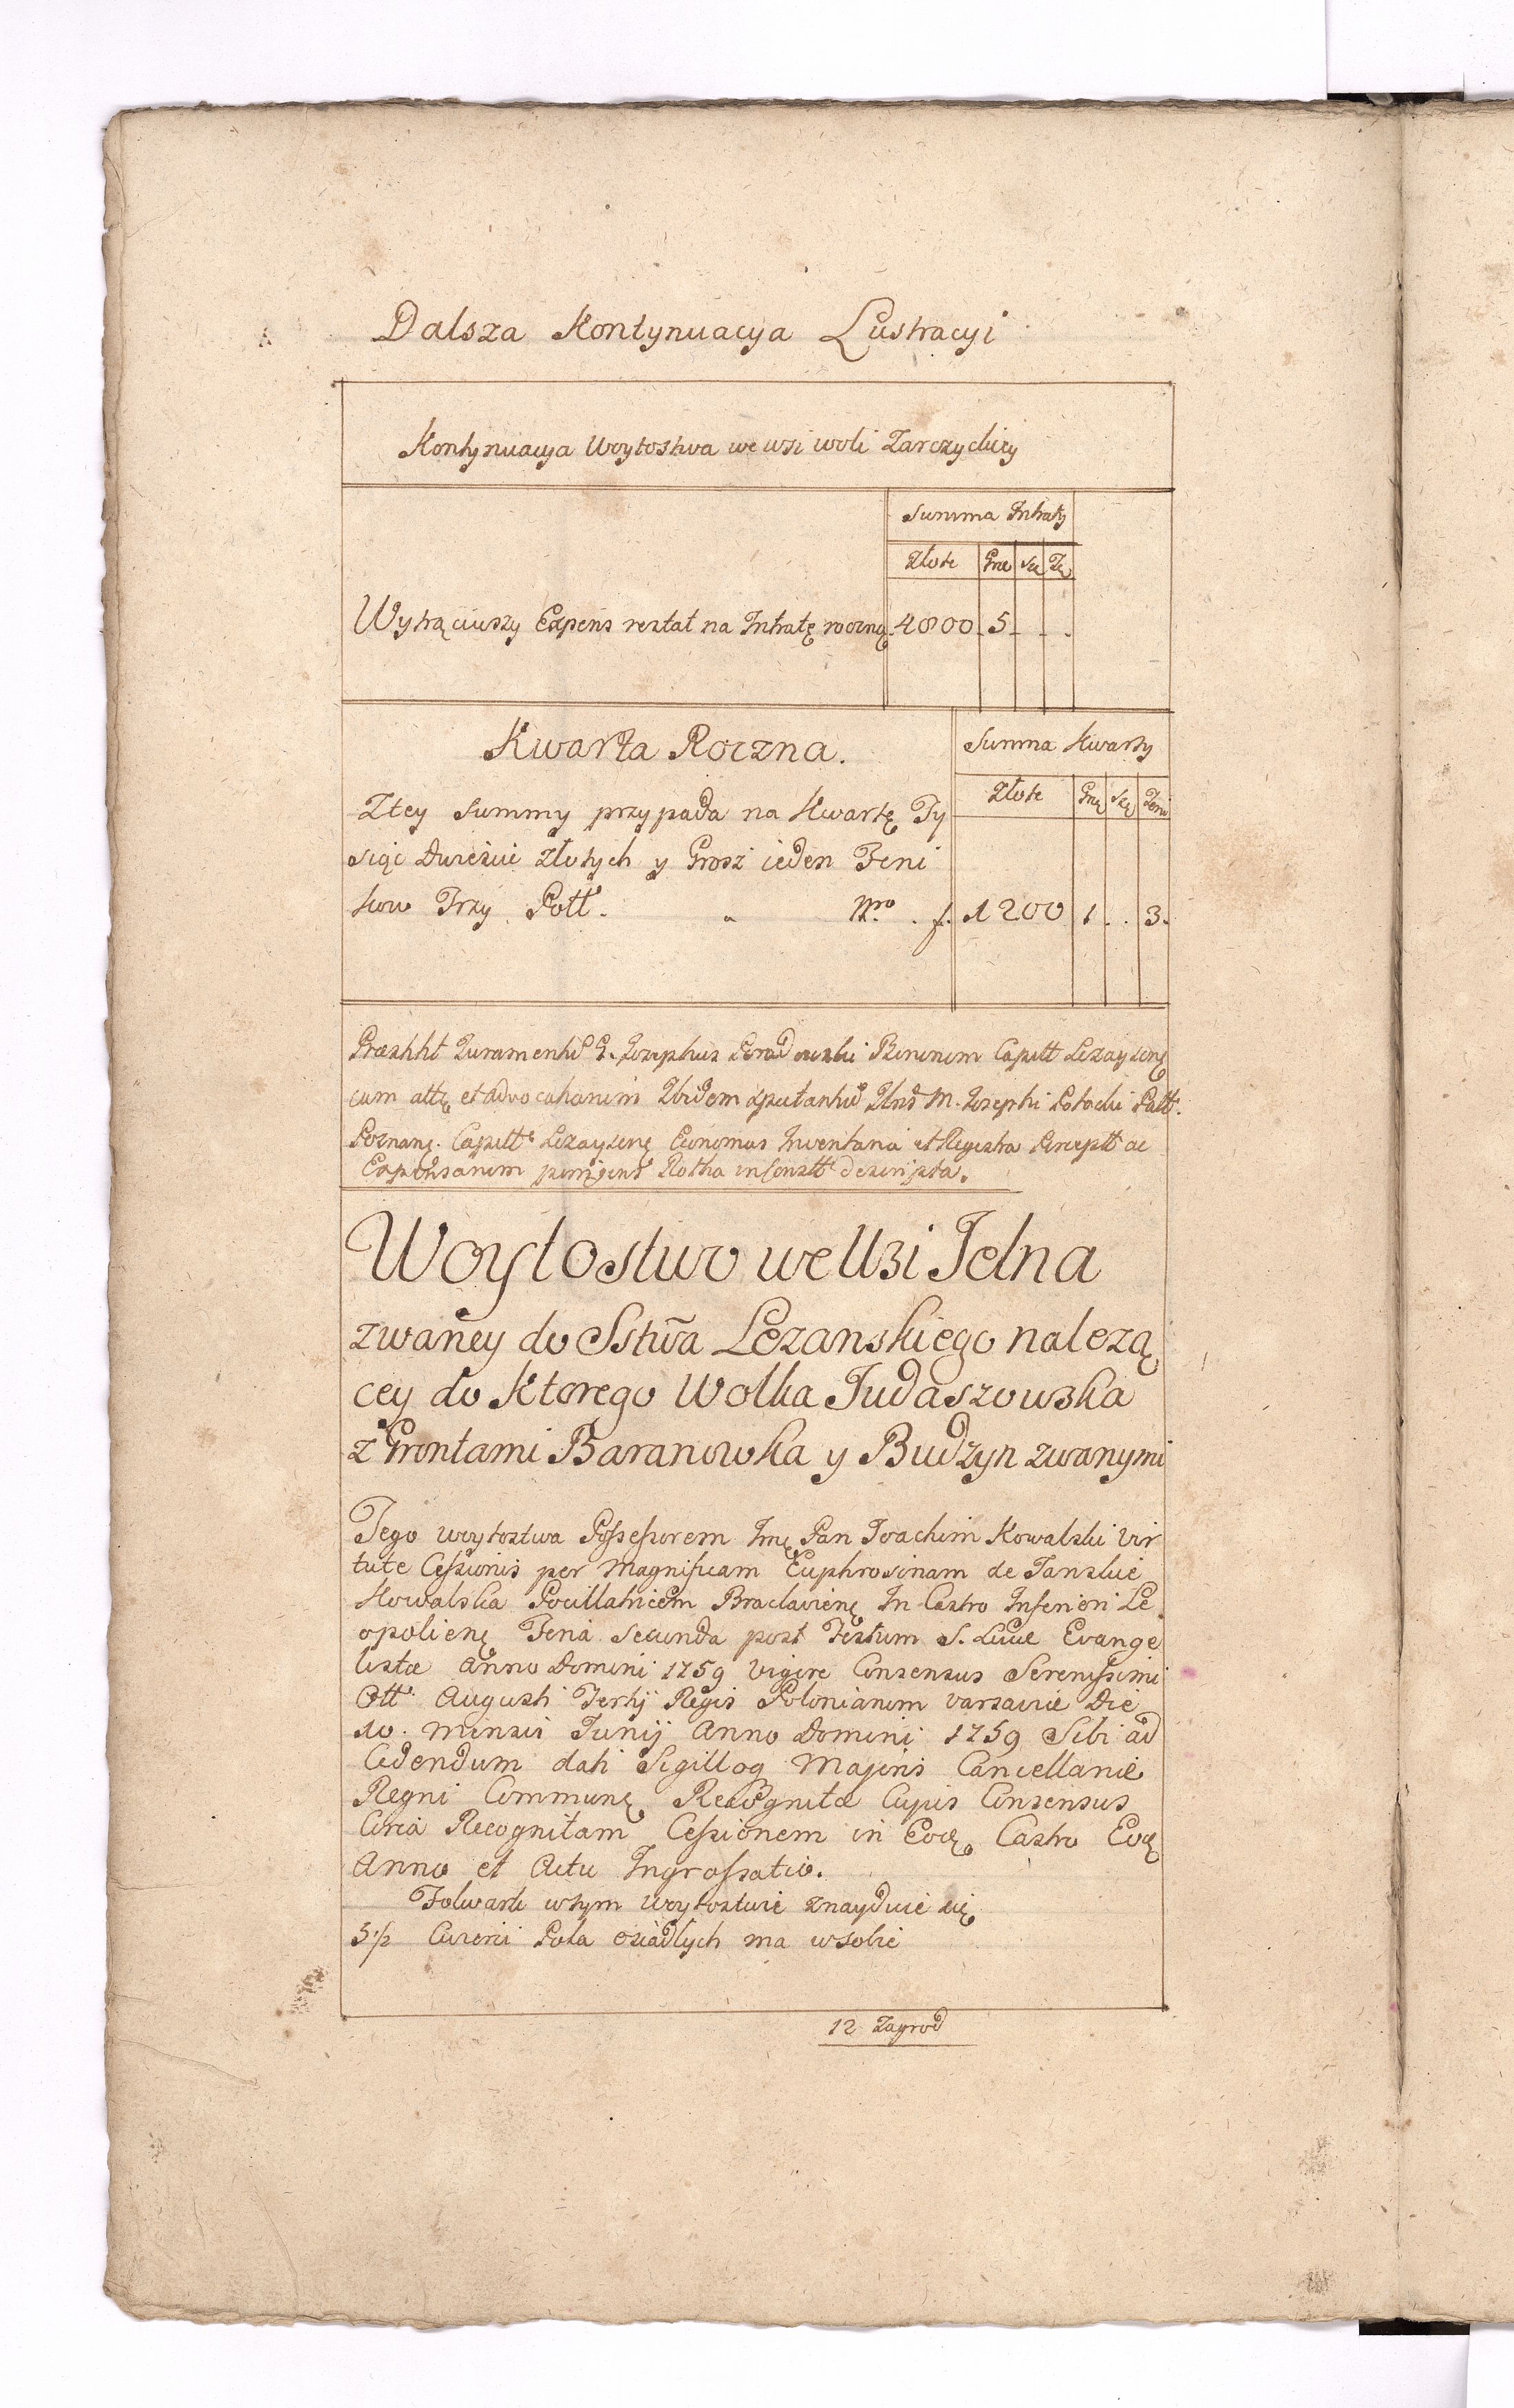 Dalsza Kontynuacya Lustracyi
Kontynuacya Woytostwa we wsi woli Zarczyckiey
Summa Intraty
Złote Gne Sze
Wytrąciwszy Expens restat na Intratę roczną 4800 5
Kwarta Roczna. Summa Kwarty
Złote Feni
Ztey Summy przypada na Kwartę Ty
siąc Dwieście Złotych y Grosz ieden Feni
kow Trzy Poll. Nro f. 1200 1 3.
Juramentū G. Josephus Capitt Lezaysenę
cum attę et Advocatiarum Ibidem M. Josephi Potocki Palt.
Poznanę. Capitt Lezaysenę Economus Inventaria et Regestra Percept ac
Expensarum Rotha descripta.
Woytostwo we Wsi Jelna
zwañey do Sstw̃a Lezanskiego nalezą
cey do Ktorego Wolka Judaszowska
z Grontami Baranowka y Budzyn zwanymi
Tego woytostwa Possessorem Jmę Pan Joachim Kowalski Vir
tute Cessionis per Magnificam Euphrosinam de Janskie
Kowalska Pocillatricem Braclavienę In Castro Inferiori Le
opolienę Feria Secunda post Festum S. Lucæ Evange
listæ Anno Domini 1759 vigore Consensus Serenissimi
Ott Augusti Tertij Regis Poloniarum Varsaviæ Die
10. Mensis Junij Anno Domini 1759 Sibi ad
Cedendum dati Sigilloq Majoris Cancellariæ
Regni Communę Recognitæ Cujus Consensus
Circa Recognitam Cessionem in Eodę Castro Eodę
Anno et Actu Ingrossatio.
Folwark wtym woytostwie znayduie się
Pola osiadłych ma wsobie
12 Zagrod